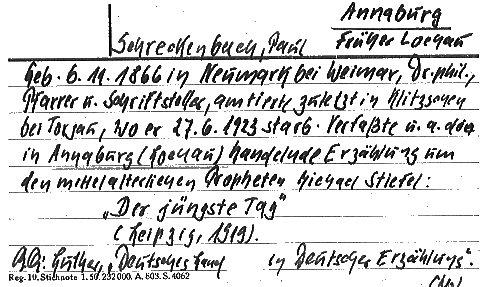 Annaburg
Schreckenbach, Paul Früher Lochau
Geb. 6. 11. 1866 in Neumark bei Weimar, Dr. phil.,
Pfarrer u. Schriftsteller, amtierte zuletzt in Klitzschen
bei Torgau, wo er 27.6.1923 starb. Verfaßte u. a. das
in Annaburg (Lochau) handelnde Erzählung um
den mittelalterlichen Propheten Michael Stiefel:
„Der jüngste Tag"
(Leipzig, 1919).
Luther, „Deutsches Land in Deutscher Erzählung".
Reg. 10. Stichnote 1. 50. 232000. A. 803. S. 4062